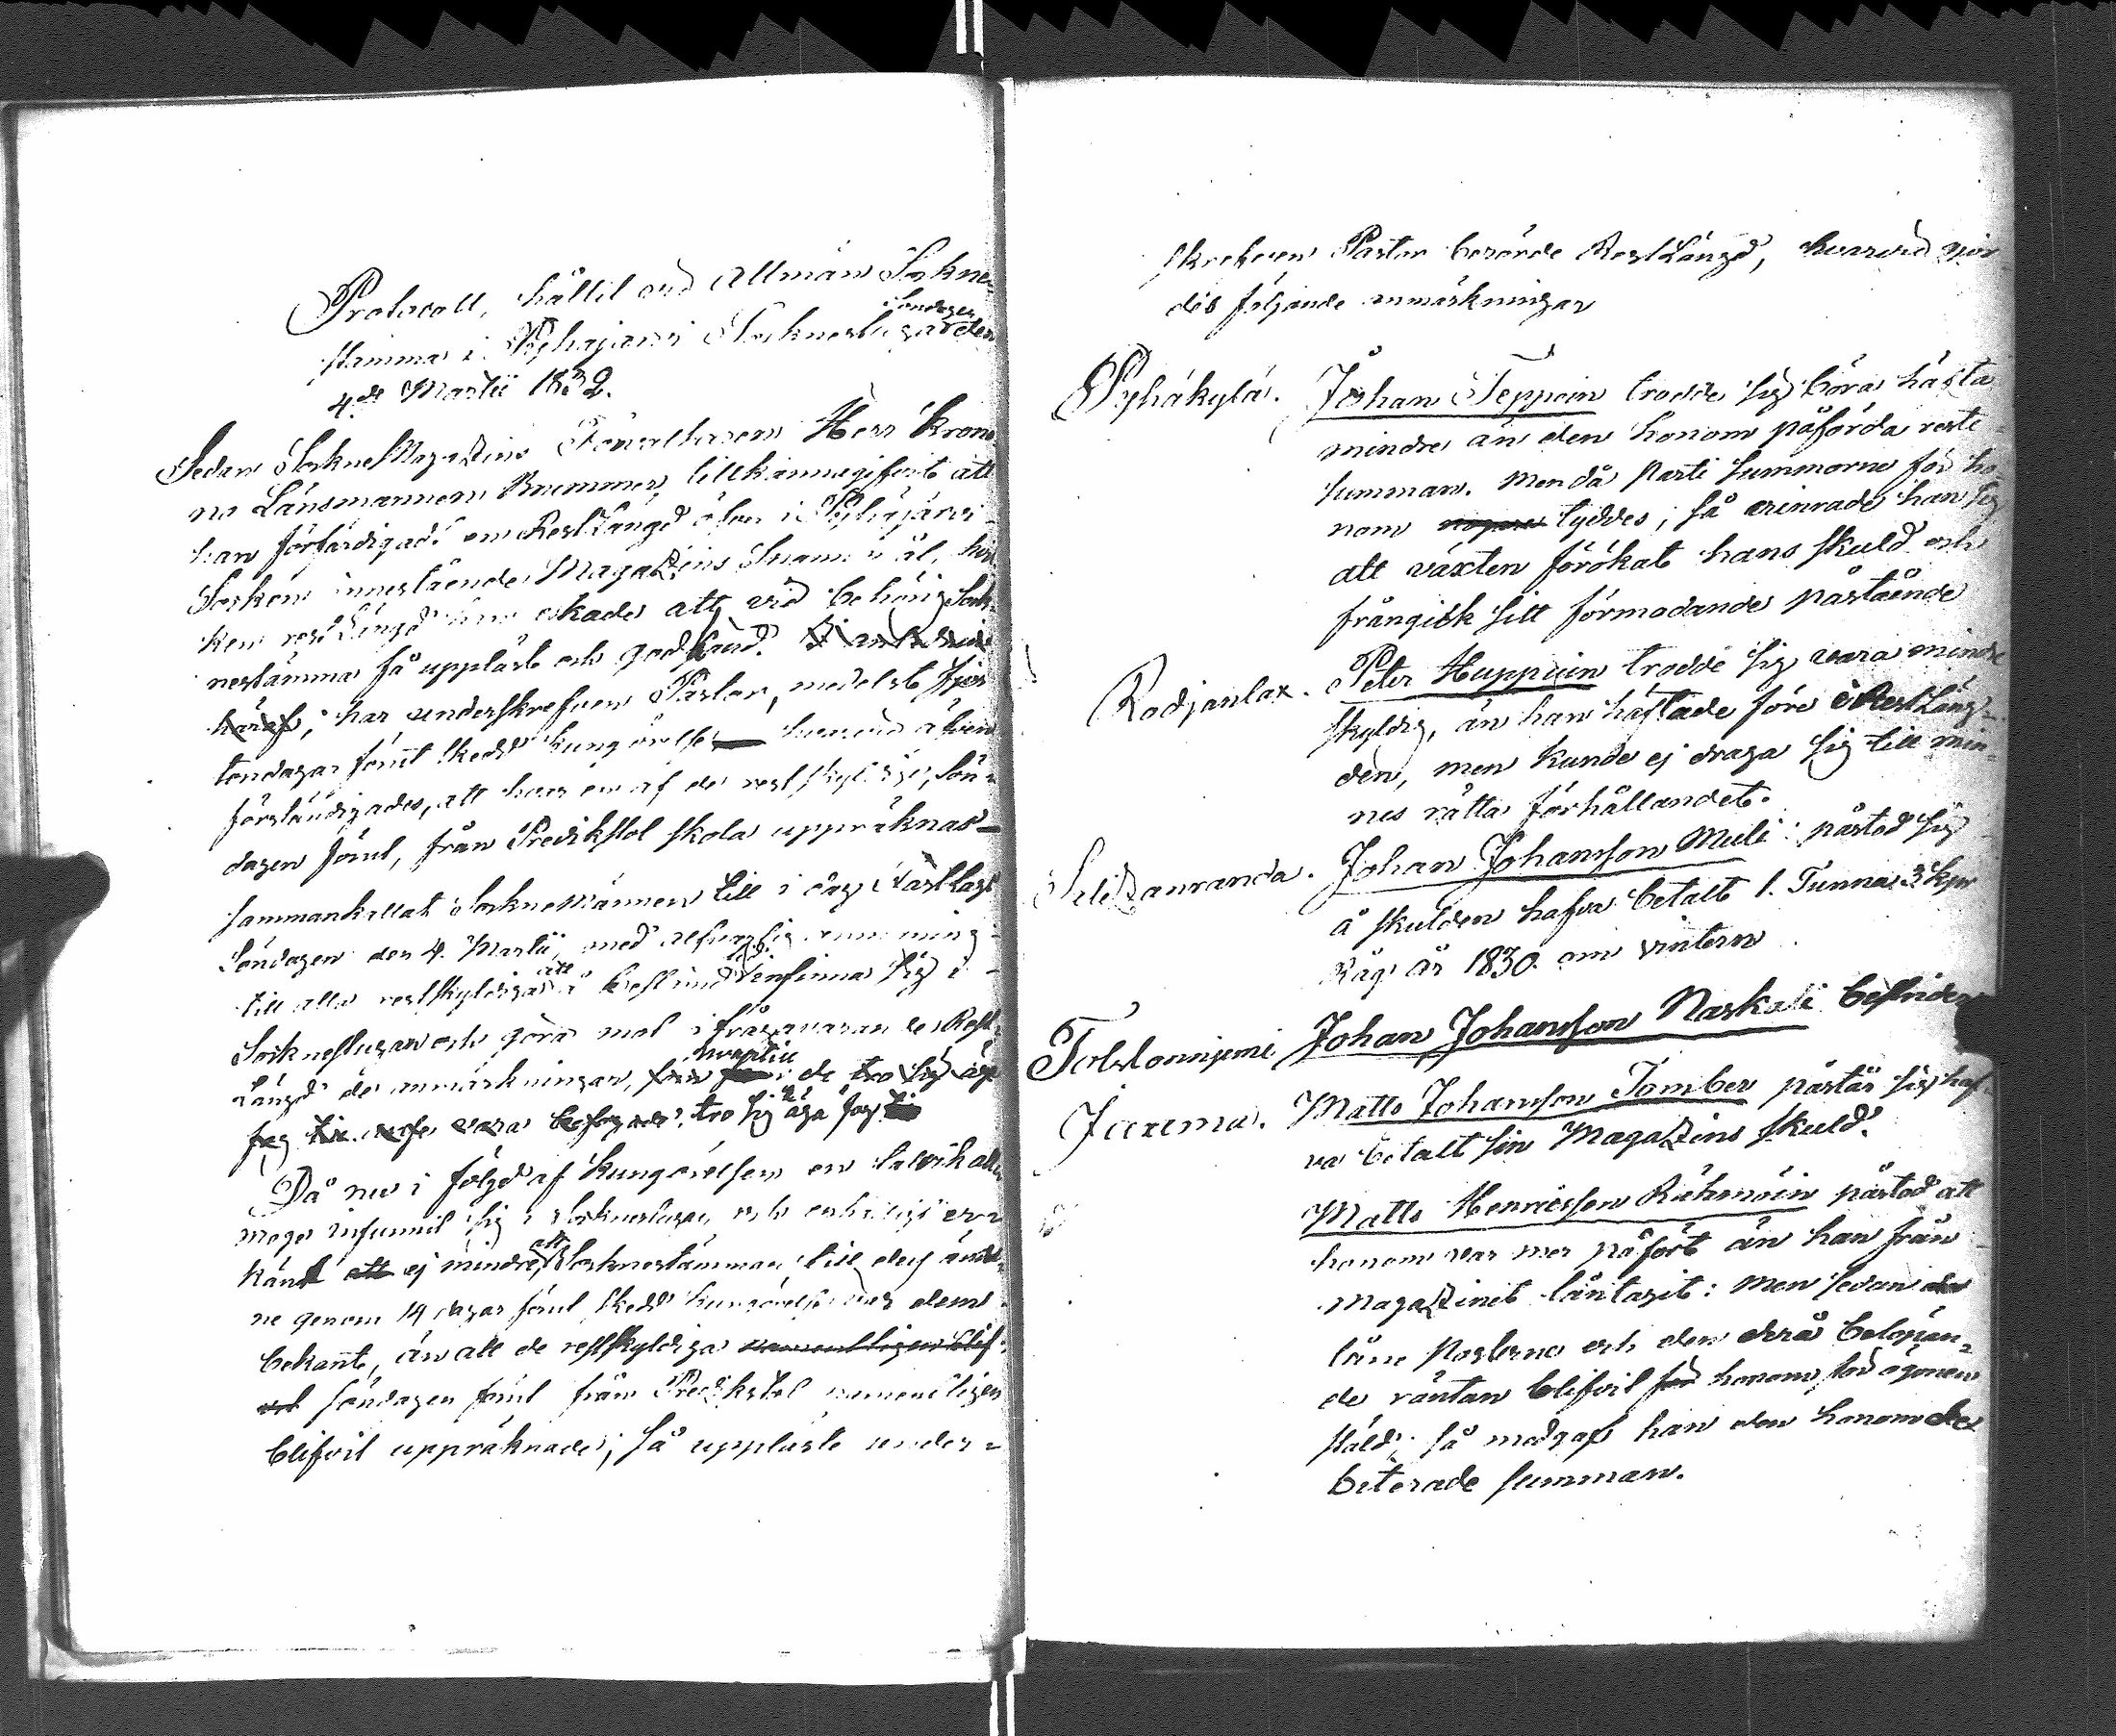 Protocoll, hållit vid Allmän Sokne-
stämma i Pyhäjärvi Soknestuga söndagen den
4de Martii 1832.
Sedan SokneMagazins Förvaltaren Herr Krono-
no Länsmannen Bremmer, tillkännagifvit att
han förfärdigadt en RestLängd öfver i Pyhäjärvi
Socken innestående Magazins
ken restLängd önskades att vid behörig Sok-
nestämma få uppläst och godkänd.
har underskrefven Pastor, medelst fjor-
tondagar förut skedd kungörelse hvarvid äfven
förständigades, att hvar en af de restskyldige, Sön-
dagen förut, från Predikstol skola uppräknas
sammankallat Soknemännen till i dag Fastlags
Söndagen den 4. Martii, med alfvarlig
till alla restskyldiga att infinna sig i
Soknestugan och göra mot i fråga varande Rest-
Längd de anmärkningar, hvartill de tro sig äga
fog vara befogade, tro sig äga fog
Då nu i följd af Kungörelsen en talrik all-
moge infunnit sig i Soknestugan, och enhälligt er-
känt att ej mindre, att Soknestämman till detta ändå-
ne genom 14 dagar förut skedd kungörelse var dem
bekant, än att de restskyldiga namnteligen blif-
vit söndagen förut från Predikstol namneligen
blifvit uppräknade; så upplästе under-
skrefven Pastor berörde RestLängd, hvarvid gjor-
des följande anmärkningar
Pyhäkylä. Johan Teppoin trodde sig böra häfta
mindre än den honom påförda rest-
summan. Men då Parti Summorna för ho-
nom tyddes; så erinrade han sig
att växten förökat hans skuld och
frångick sitt förmodande påstående
Rodjanlax. Peter Huppoin trodde sig vara mindre
skyldig, än han häftade före i RestLäng-
den, men kunde ej draga sig till min-
nes rätta förhållandet.
Selitzanranda. Johan Johansson Meili påstod sig
å skulden hafva betalt 1. Tunna 3 kpr
Råg år 1830 om vintern
Tolstoiniemi Johan Johansson Naskali befinder
Jaaxma. Matts Johansson Tomber påstår sig haf-
va betalt sin Magazins skuld.
Matts Henricsson Riikonoin påstod att
honom var mer påfört än han från
Magazinet låntagit: Men sedan
låne Posterna och den derå belöpan-
de räntan blifvit för honom för ögonen
stäld, så medgaf han den honom de-
biterade summan.